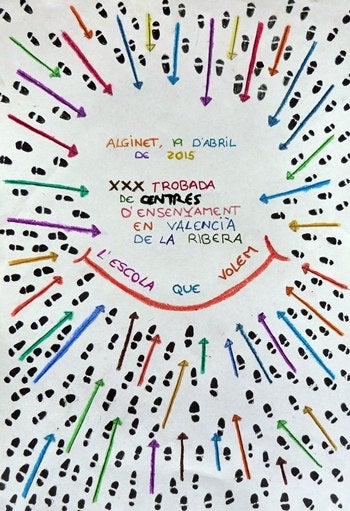 ALGINET, 19 D'ABRIL
DE 2015
XXX TROBADA
DE CENTRES
D'ENSENYAMENT
EN VALENCIÀ
DE LA RIBERA
L'ESCOLA QUE VOLEM